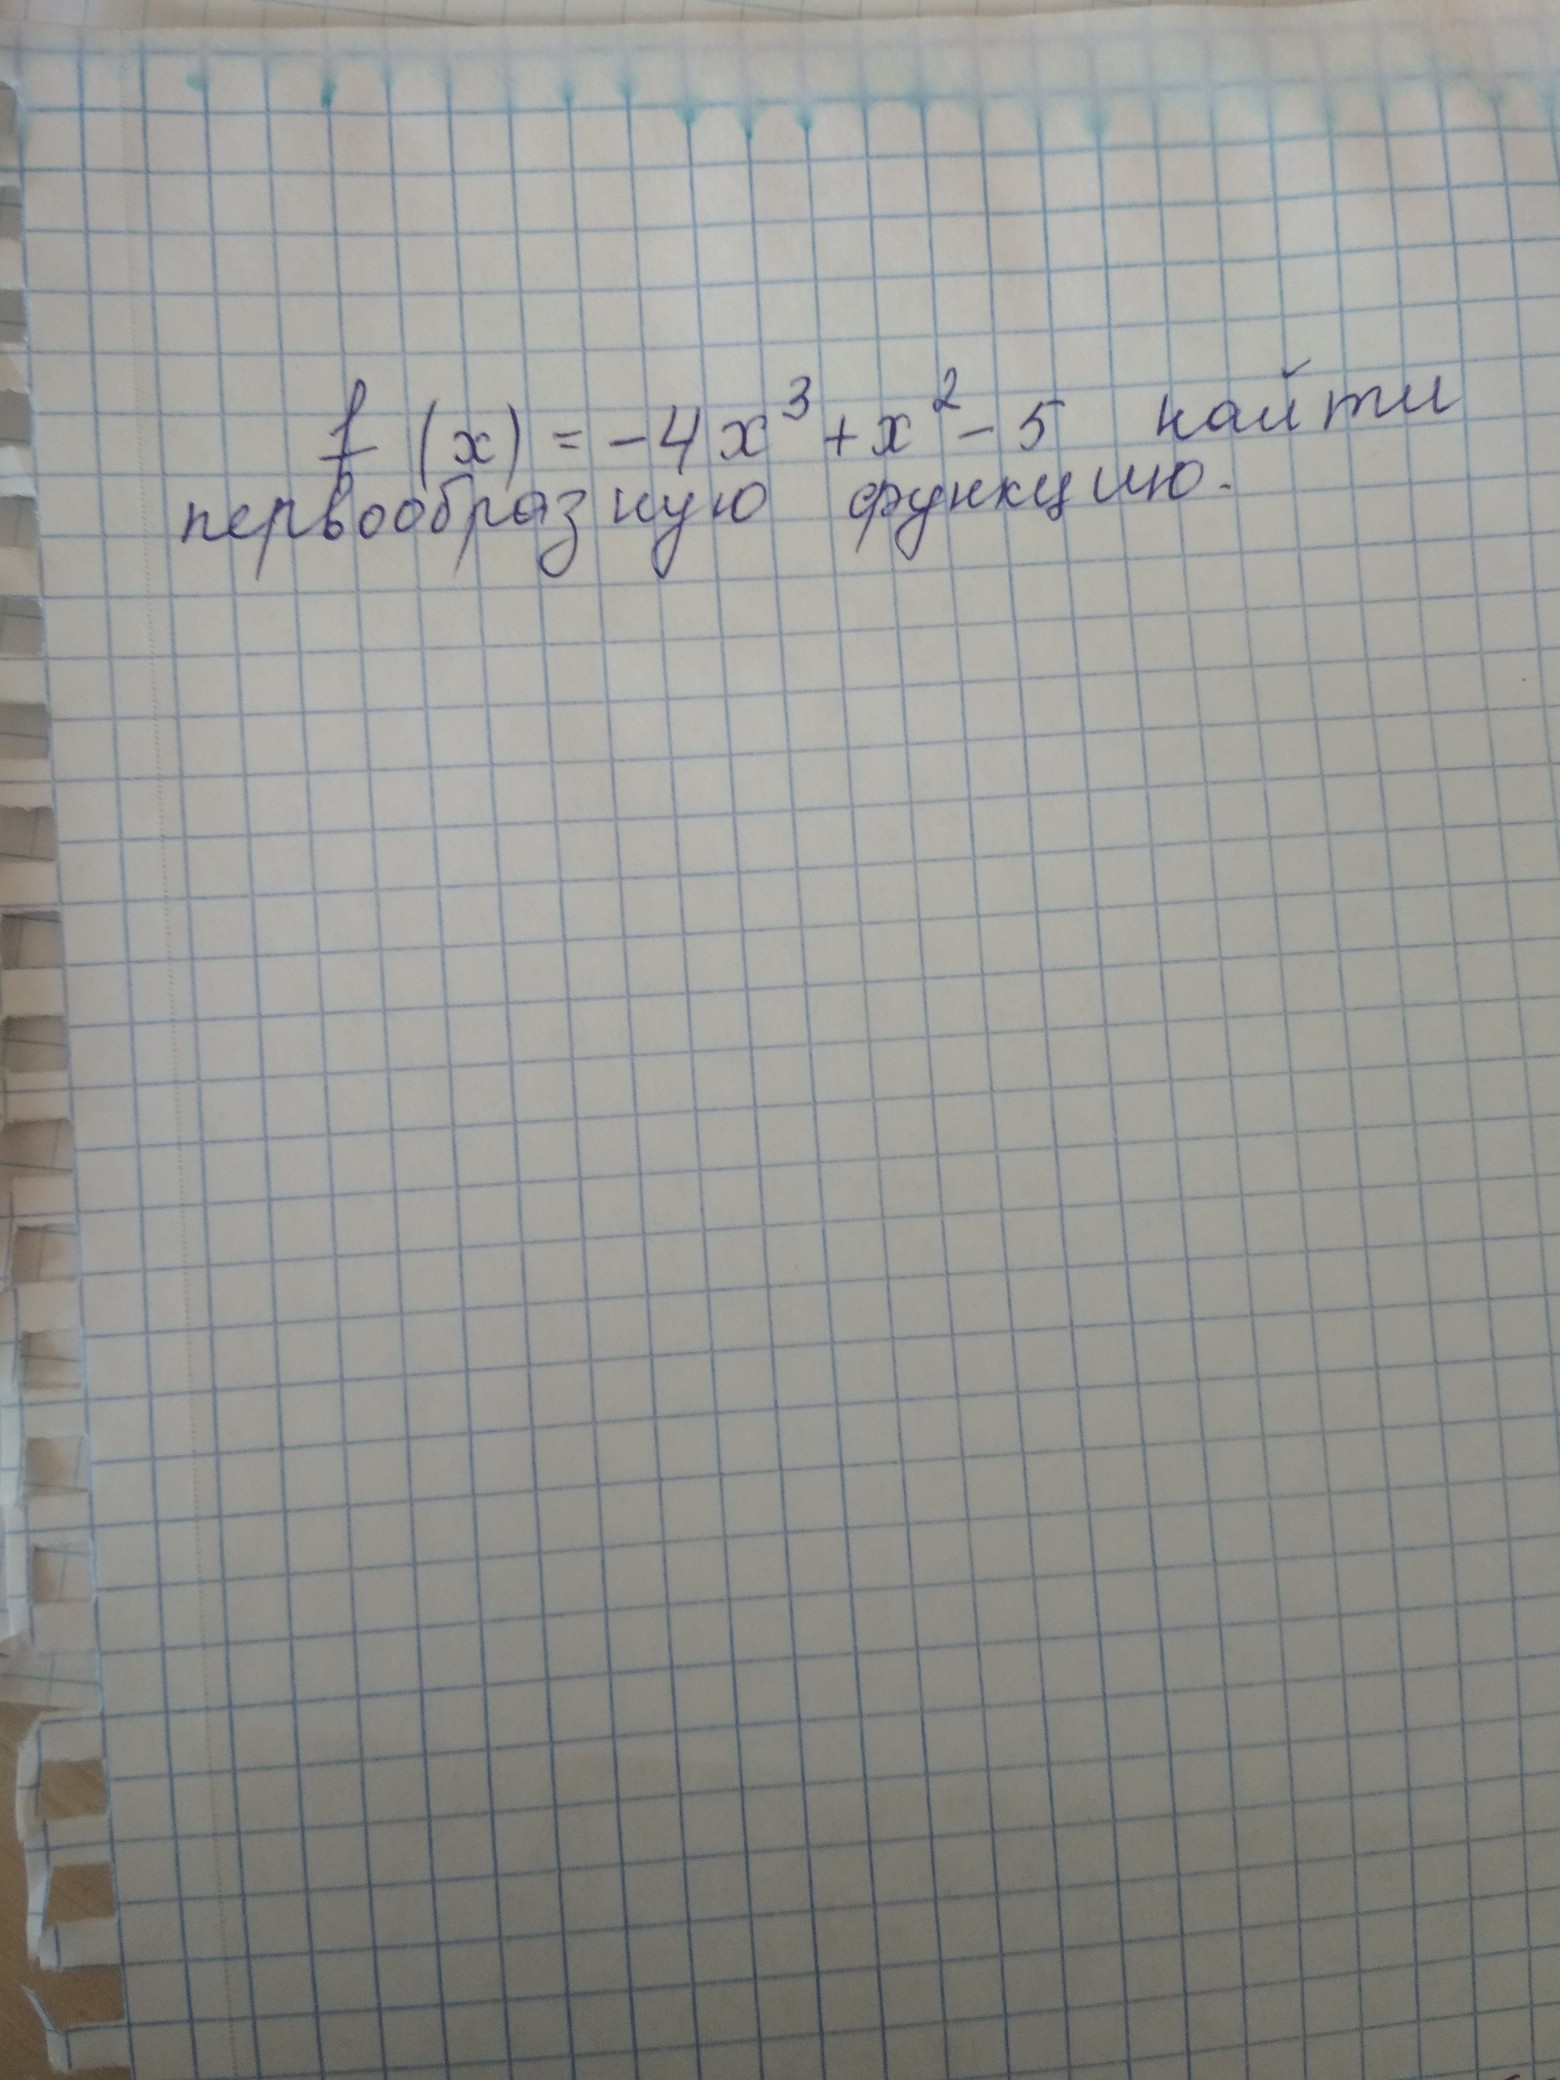 f (x) = -4x³ + x² - 5 найти
первообразную функцию.